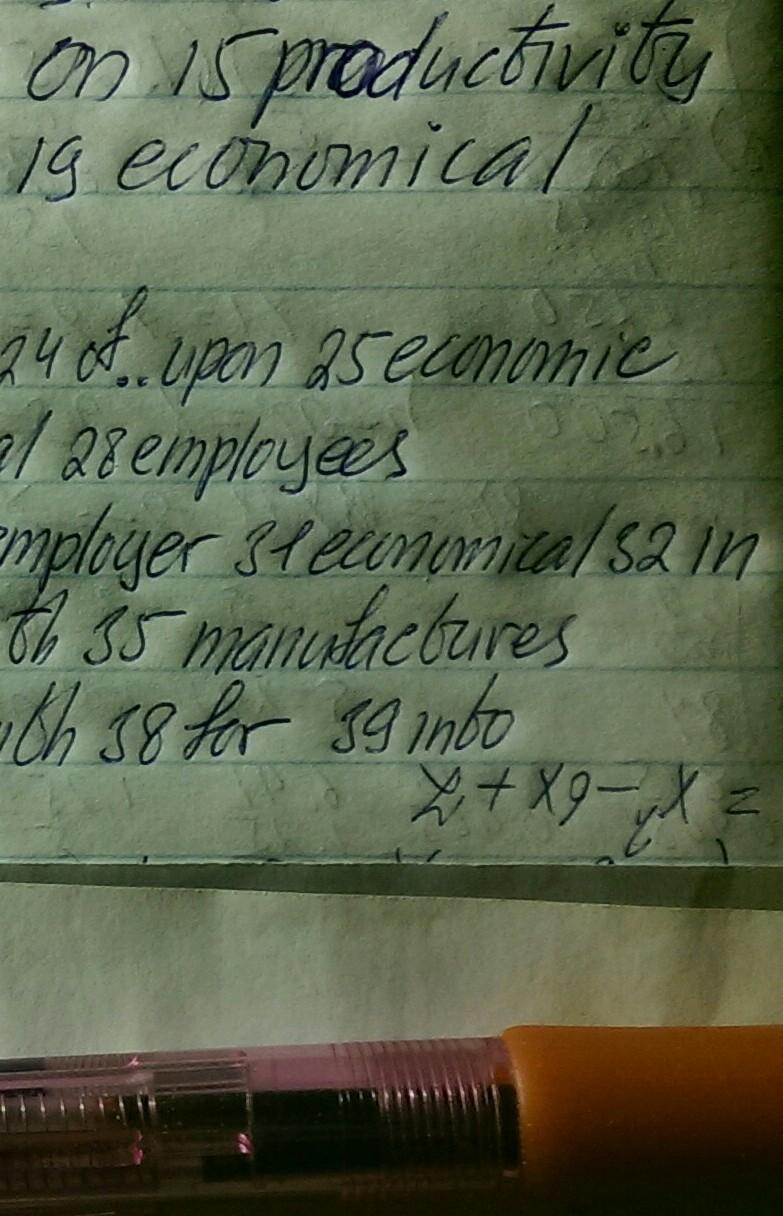 on 15 productivity
19 economical
24 of.. upon 25 economic
al 28 employees
mployer 31 economical 32 in
th 35 manufactures
ith 38 for 39 into